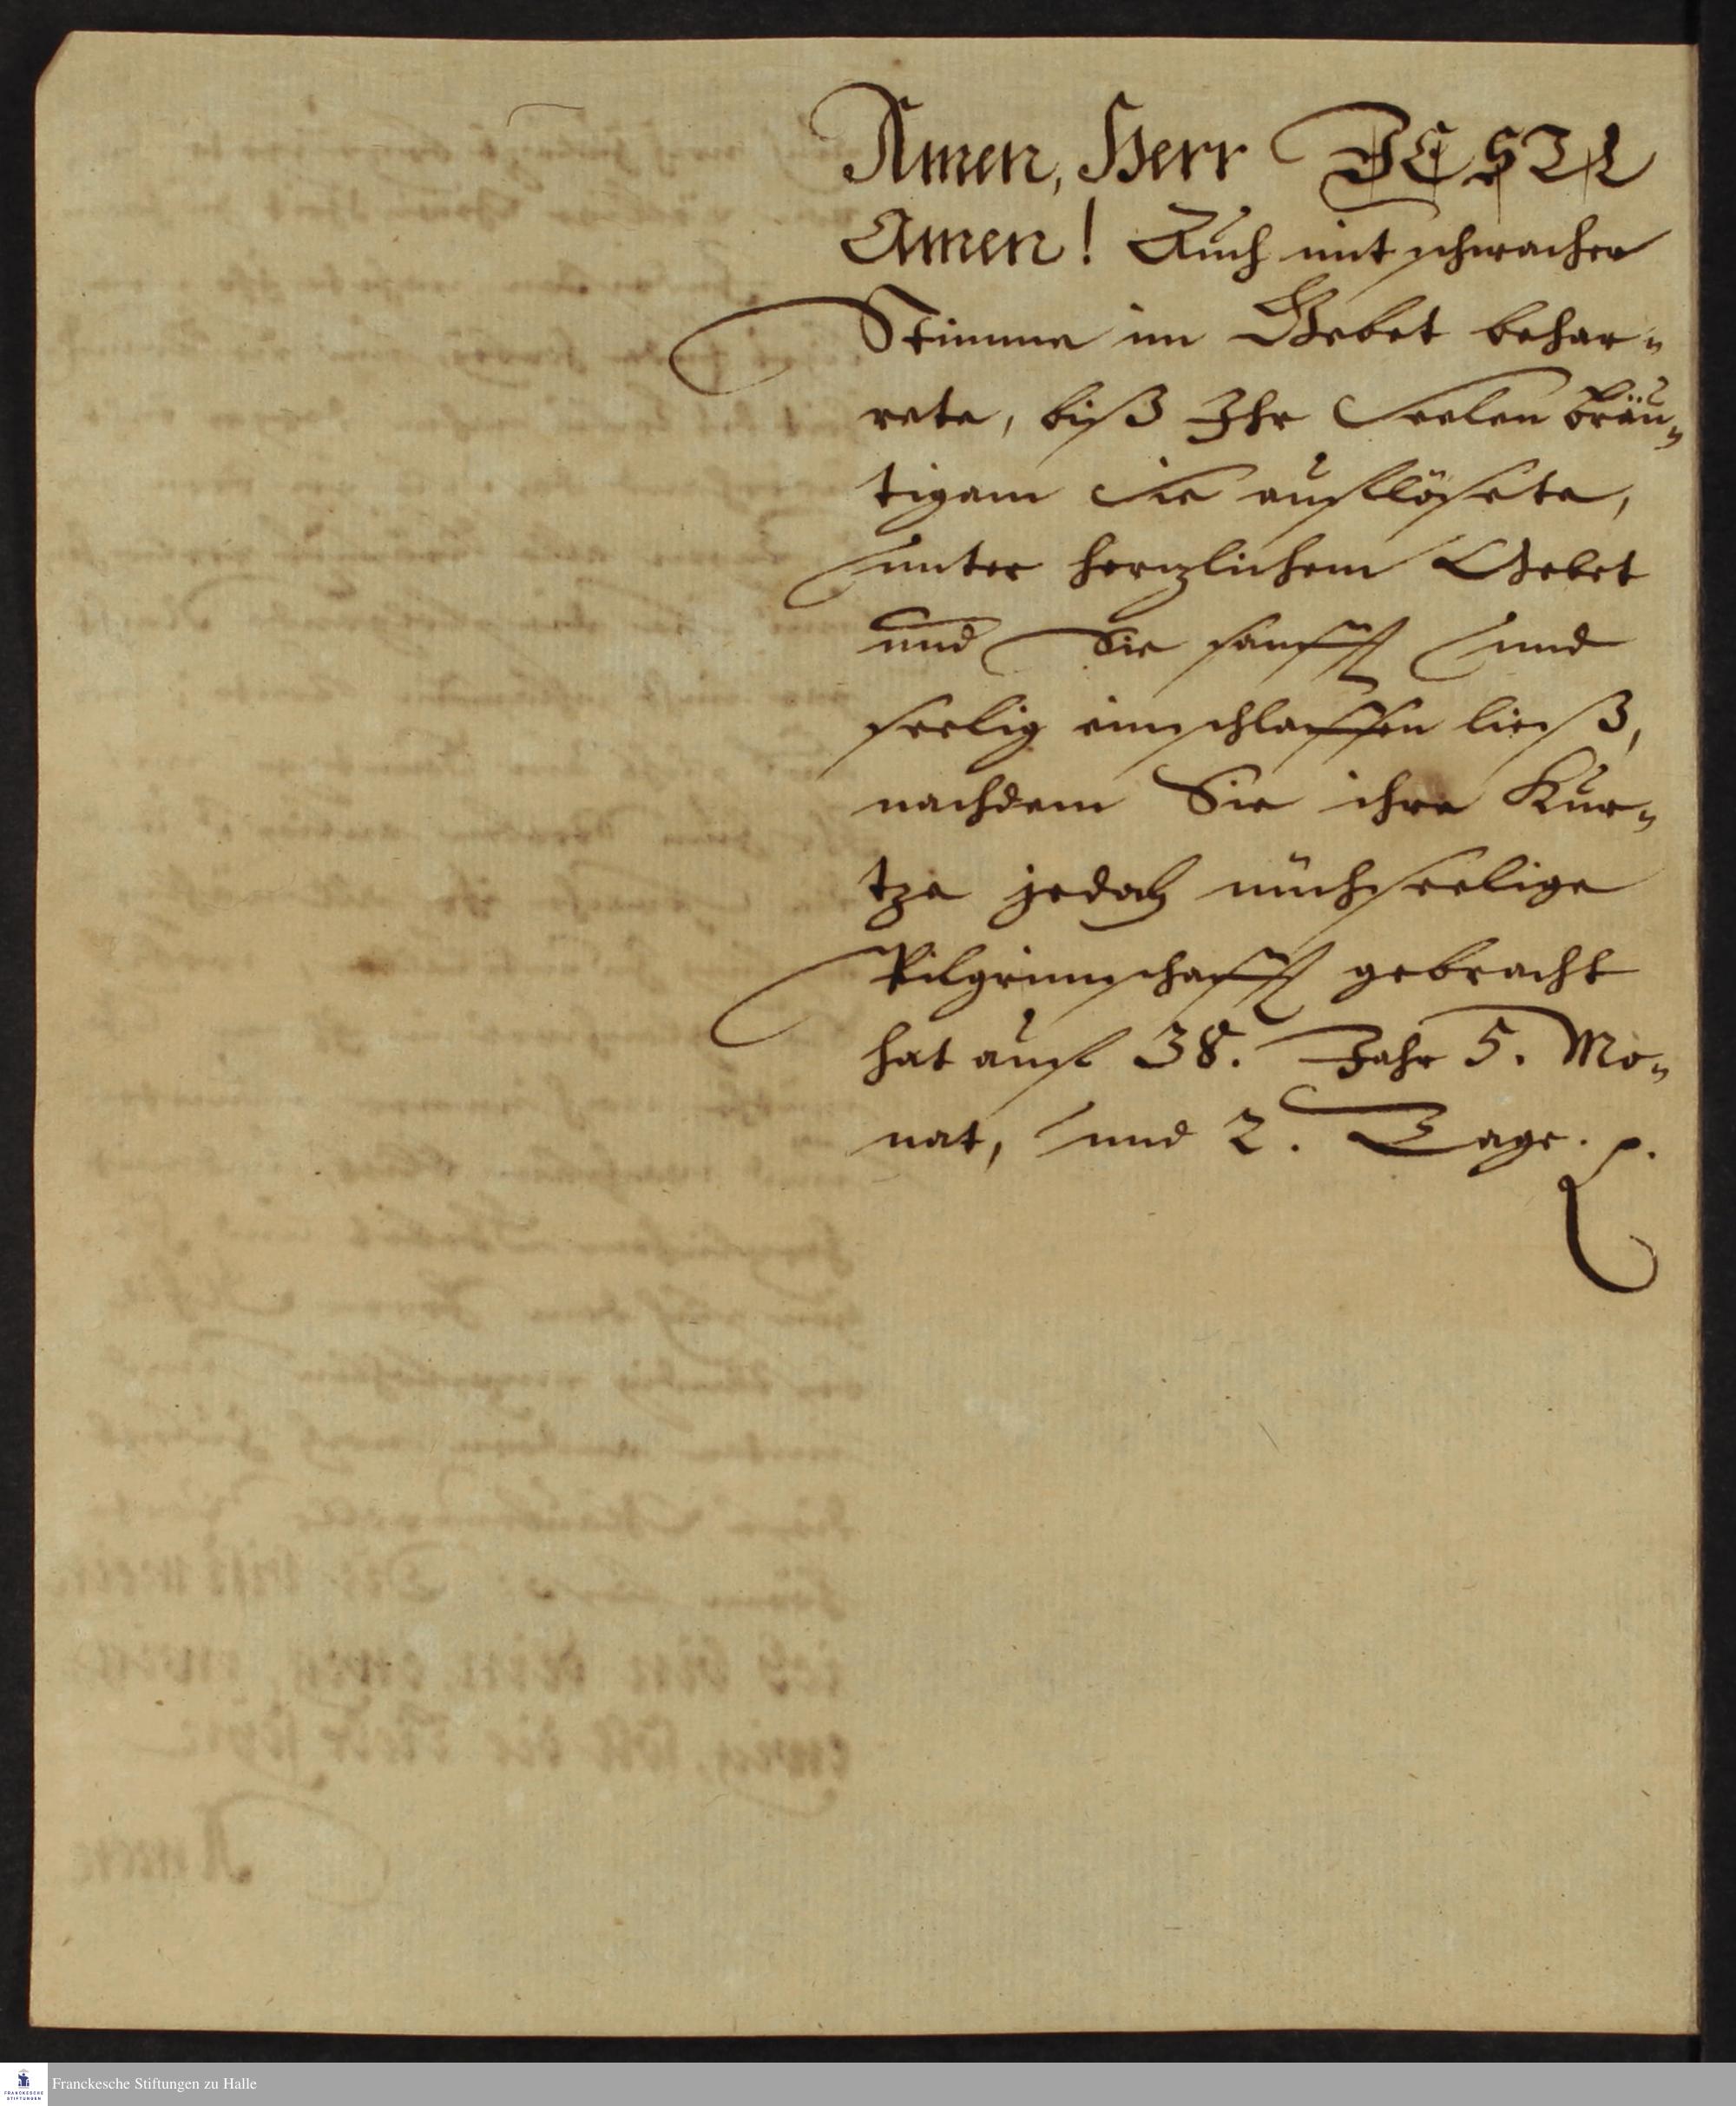 Amen, Herr JESU
Amen! Auch mit schwacher
Stimme im Gebet behar-
rete, biß Ihr Seelen bräu-
tigam Sie aufflösete,
unter hertzlichem Gebet
und Sie sanfft und
seelig einschlaffen ließ,
nachdem Sie ihre Kur-
tze jedoch mühseelige
Pilgrimschafft gebracht
hat auff 38. Jahr 5. Mo-
nat, und 2. Tage.
Franckesche Stiftungen zu Halle
FRANCKESCHE
STIFTUNGEN